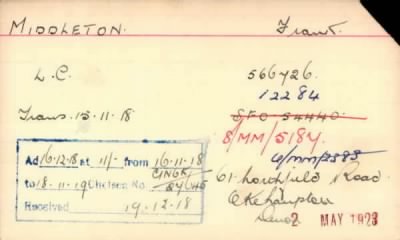 MIDDLETON. Frank.
L.C. 566726.
12284
Trans. 15-11-18 SFO 54440.
8/MM/5184.
Ad 16.12.18 at 11/- from 16-11-18
to 18-11-19 Chelsea No.
Received 19-12-18
61 Road
Okehampton
2 MAY 1923